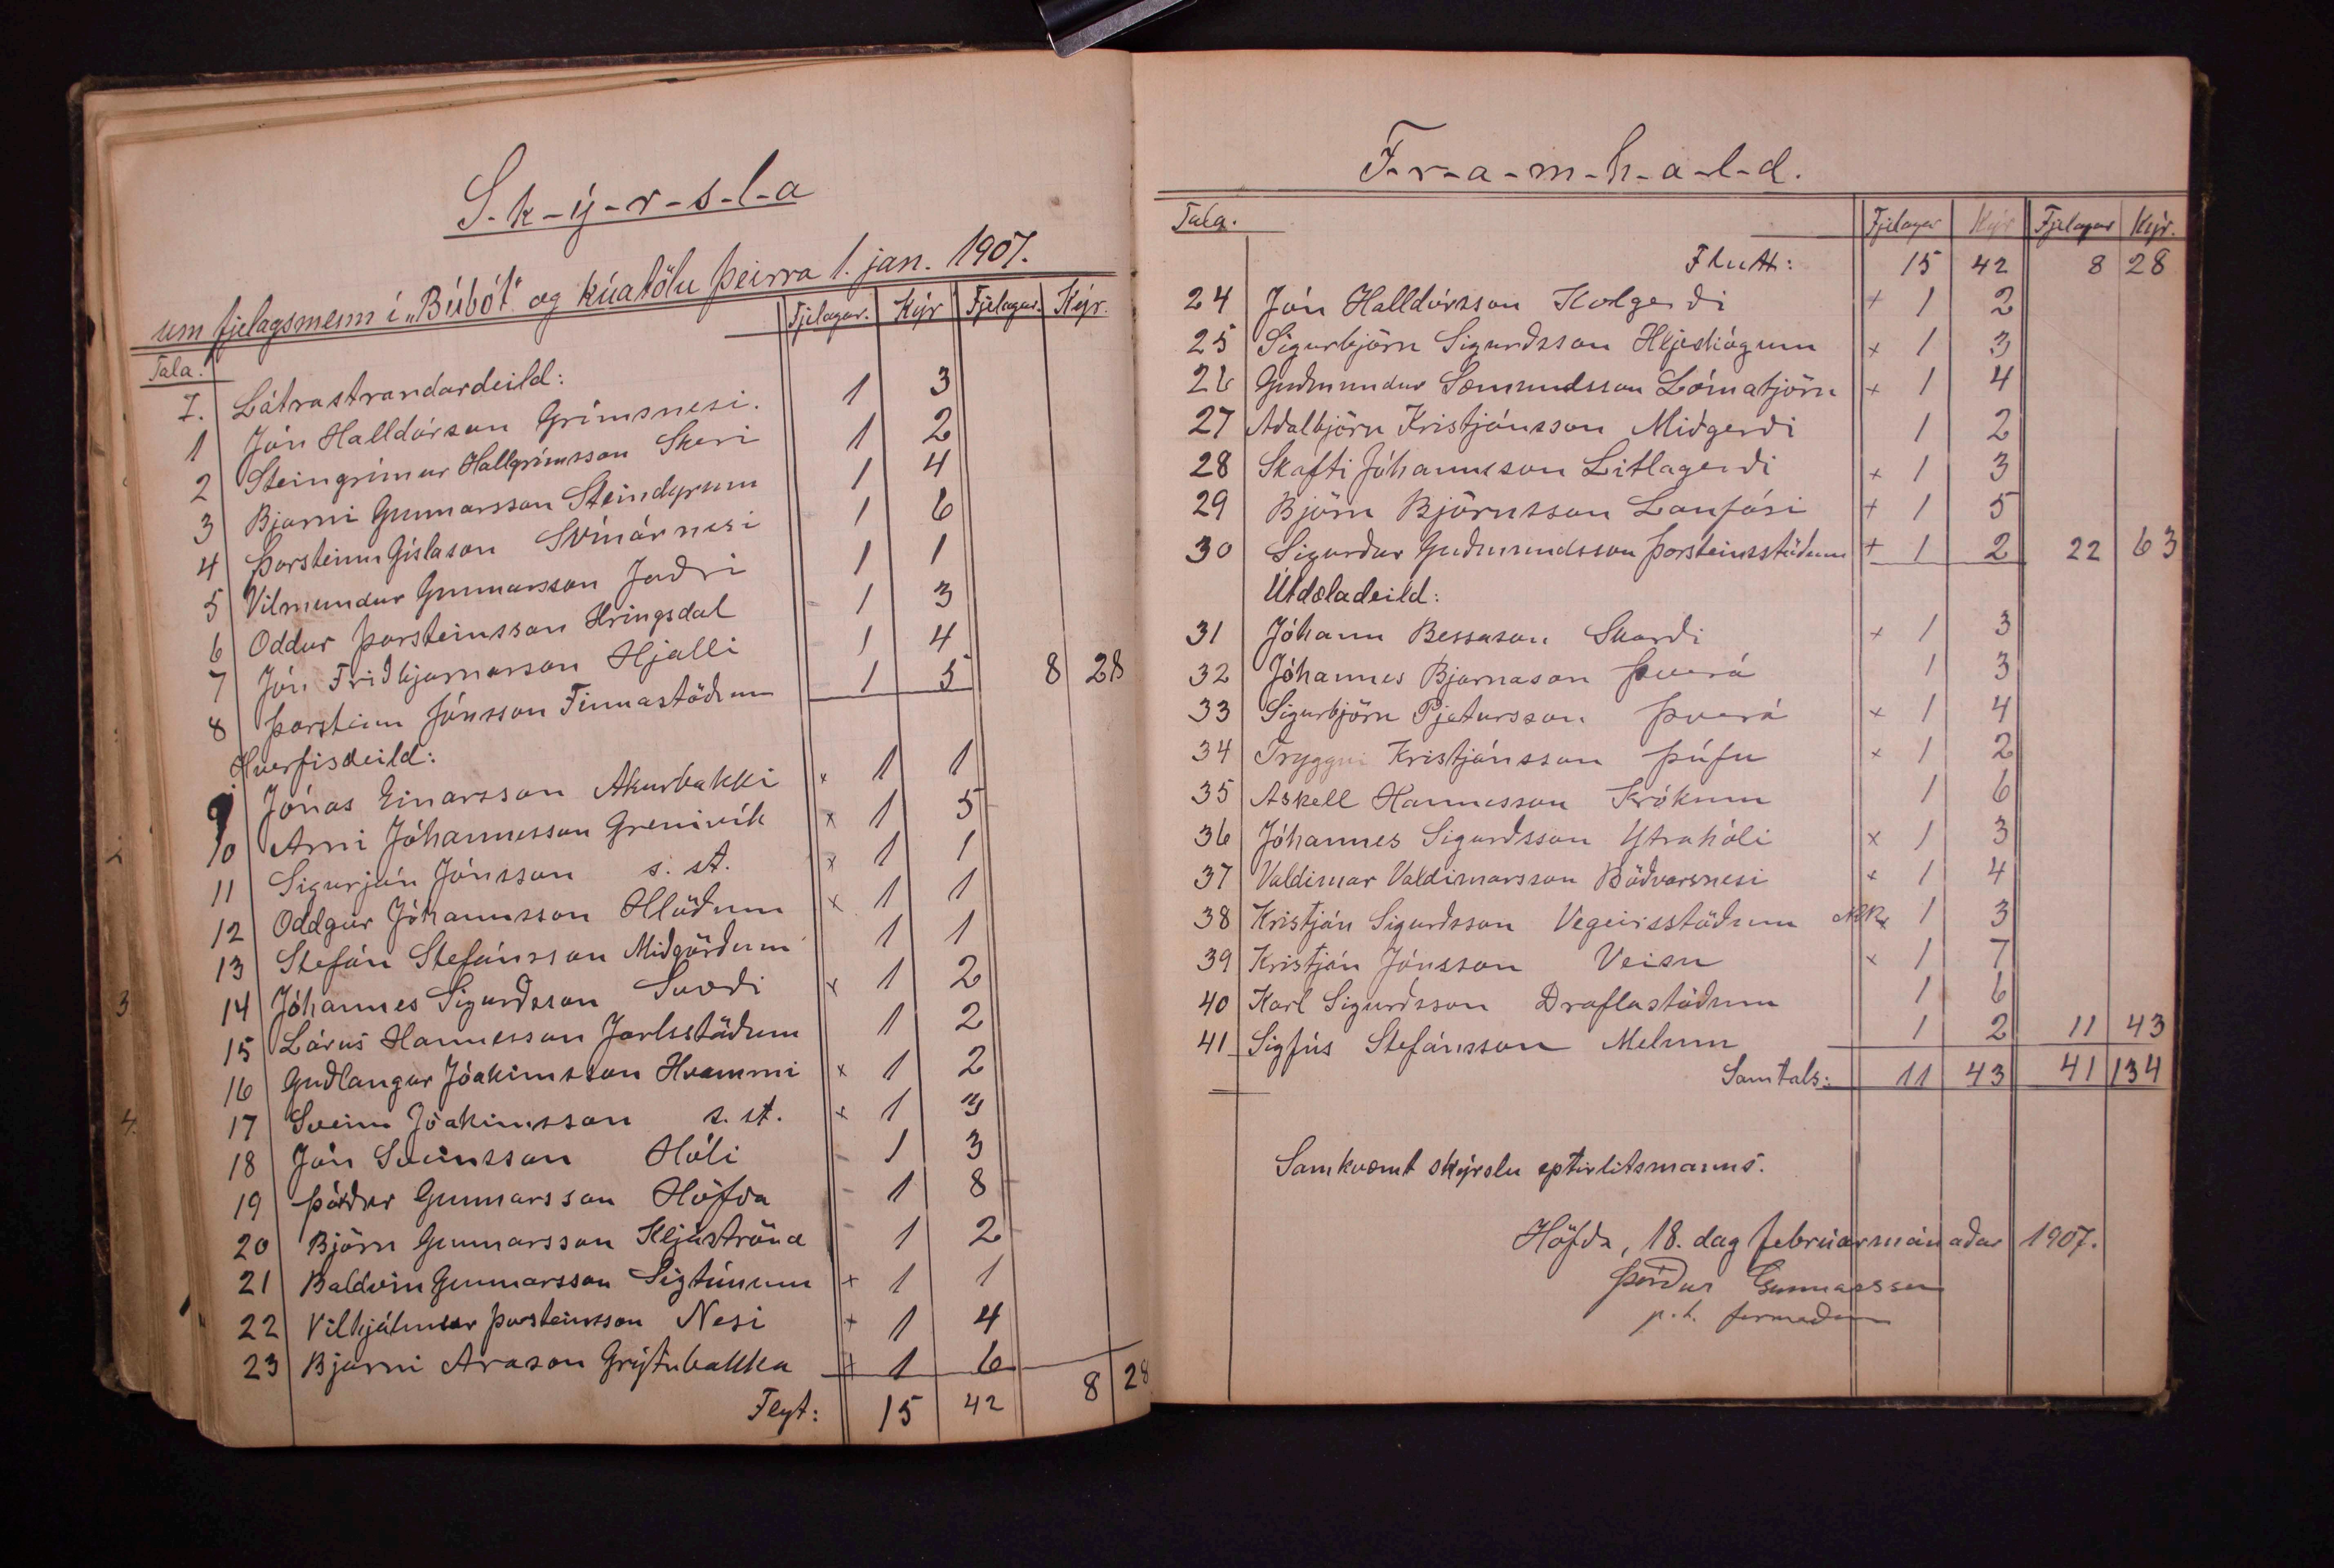 S-k-ý-r-s-l-a
um fjelagsmenn í „Búbót“ og kúatölu þeirra 1. jan. 1907.
Tala. Fjelagar. Kýr Fjelagar. Kýr.
I. Látrastrandardeild:
1 Jón Halldórsson Grímsnesi. 1 3
2 Steingrímur Hallgrímsson Skeri 1 2
3 Bjarni Gunnarsson Steindyrum 1 4
4 Þorsteinn Gíslason Svínárnesi 1 6
5 Vilmundur Gunnarsson Jaðri 1 1
6 Oddur Þorsteinsson Hringsdal 1 3
7 Jón Friðbjarnarson Hjalli 1 4
8 Þorsteinn Jónsson Finnastöðum 1 5 8 28
Hverfisdeild:
9 Jónas Einarsson Akurbakki x 1 1
10 Arni Jóhannesson Grenivík x 1 5
11 Sigurjón Jónsson s. st. x 1 1
12 Oddgur Jóhannsson Hlöðum x 1 1
13 Stefán Stefánsson Miðgörðum 1 1
14 Jóhannes Sigurðsson Svæði x 1 2
15 Lárus Hannesson Jarlsstöðum 1 2
16 Guðlaugur Jóakimsson Hvammi x 1 2
17 Sveinn Jóakimsson s. st. x 1 3
18 Jón Sveinsson Hóli - 1 3
19 Þórður Gunnarsson Höfða - 1 8
20 Björn Gunnarsson Kljáströnd - 1 2
21 Baldvin Gunnarsson Sigtúnum + 1 1
22 Vilhjálmur Þorsteinsson Nesi + 1 4
23 Bjarni Arason Grýtubakka + 1 6
Flyt: 15 42 8 28
F-r-a-m-h-a-l-d.
Tala. Fjelagar Kýr Fjelagar Kýr.
Flutt: 15 42 8 28
24 Jón Halldórsson Kolgerði + 1 2
25 Sigurbjörn Sigurðsson Hljeskógum x 1 3
26 Guðmundur Sæmundsson Lómatjörn x 1 4
27 Aðalbjörn Kristjónsson Miðgerði 1 2
28 Skafti Jóhannsson Litlagerði x 1 3
29 Björn Björnsson Laufási + 1 5
30 Sigurður Guðmundsson Þorsteinsstöðum + 1 2 22 63
Útdæladeild:
31 Jóhann Bessason Skarði x 1 3
32 Jóhannes Bjarnason Þverá 1 3
33 Sigurbjörn Pjetursson Þverá x 1 4
34 Tryggvi Kristjánsson Þúfu x 1 2
35 Askell Hannesson Krókum 1 6
36 Jóhannes Sigurðsson Ytrahóli x 1 3
37 Valdimar Valdimarsson Böðvarsnesi x 1 4
38 Kristján Sigurðsson Vegeirsstöðum x 1 3
39 Kristján Jónsson Veisu x 1 7
40 Karl Sigurðsson Draflastöðum 1 6
41 Sigfús Stefánsson Melum 1 2 11 43
Samtals: 11 43 41 134
Samkvæmt skýrslu eptirlitsmanns.
Höfða, 18. dag februarmánaðar 1907.
Þórður Gunnarsson
p.t. formaður